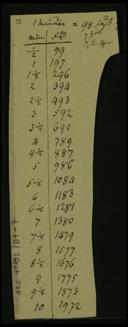 1 minute = 98.6 yds
min. yds
1/2 99
1 197
1 1/2 296
2 394
2 1/2 493
3 592
3 1/2 690
4 789
4 1/2 887
5 986
5 1/2 1084
6 1183
6 1/2 1281
7 1380
7 1/2 1479
8 1577
8 1/2 1676
9 1775
9 1/2 1873
10 1972